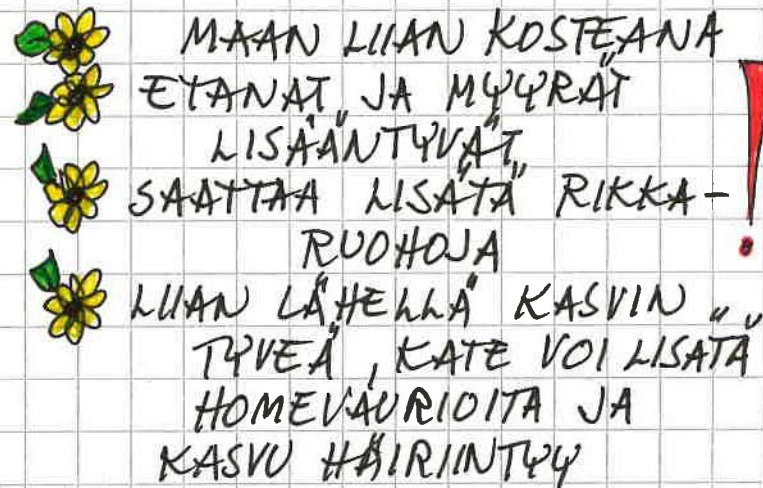 MAAN LIIAN KOSTEANA
ETANAT JA MYYRÄT
LISÄÄNTYVÄT
SAATTAA LISÄTÄ RIKKA-
RUOHOJA
LIIAN LÄHELLÄ KASVIN
TYVEÄ, KATE VOI LISÄTÄ
HOMEVAURIOITA JA
KASVU HÄIRIINTYY
!